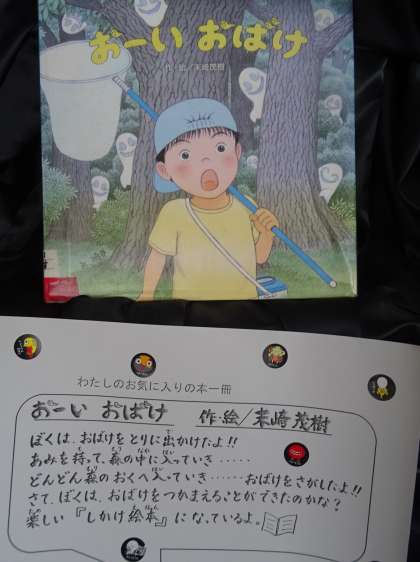 おーい おばけ
作・絵/末崎茂樹
わたしのお気に入りの本一冊
おーい おばけ 作・絵/末崎 茂樹
ぼくは、おばけをとりに出かけたよ!!
あみを持って、森の中に入っていき‥‥‥
どんどん森のおくへ入っていき‥‥‥おばけをさがしたよ!!
さて、ぼくは、おばけをつかまえることができたのかな?
楽しい『しかけ絵本』になっているよ。